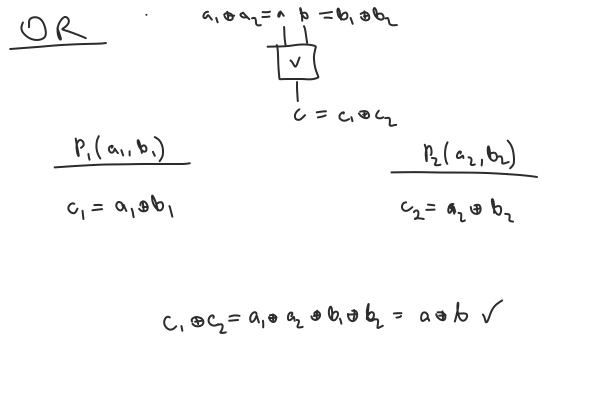 OR
a₁⊕a₂=a b=b₁⊕b₂
∨
c = c₁⊕c₂
P₁(a₁,b₁)
P₂(a₂,b₂)
c₁= a₁⊕b₁
c₂= a₂⊕b₂
c₁⊕c₂= a₁⊕a₂⊕b₁⊕b₂ = a⊕b ✓